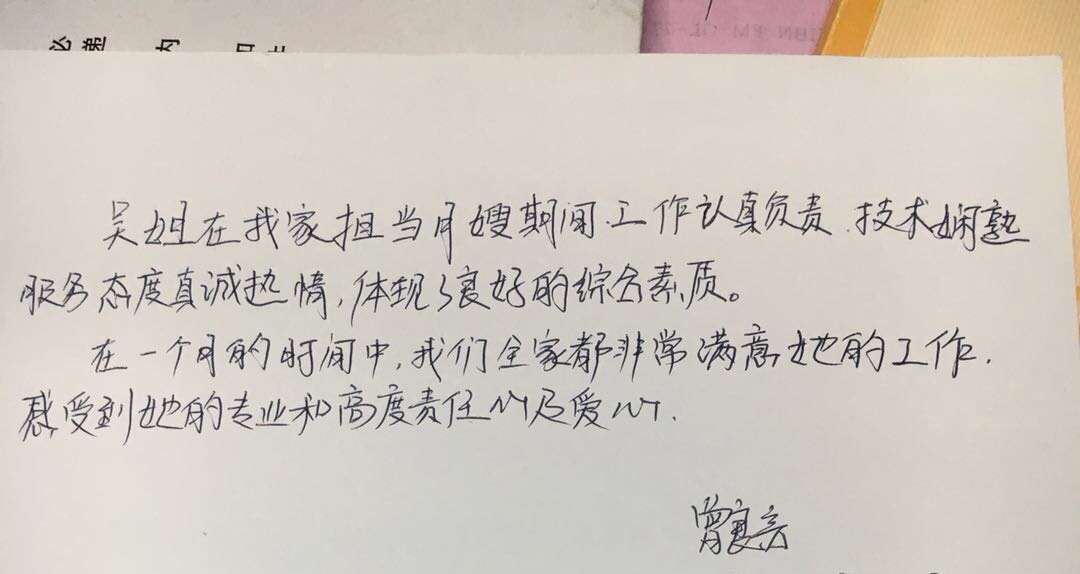 吴姐在我家担当月嫂期间.工作认真负责.技术娴熟
服务态度真诚热情,体现了良好的综合素质。
在一个月的时间中,我们全家都非常满意她的工作.
感受到她的专业和高度责任心及爱心.
曾良亮